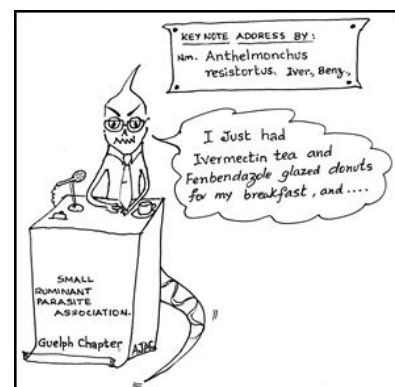 KEY NOTE ADDRESS BY:
Nm. Anthelmonchus
resistortus. Iver., Benz.,
I Just had
Ivermectin tea and
Fenbendazole glazed donuts
for my breakfast, and....
SMALL
RUMINANT
PARASITE
ASSOCIATION.
Guelph Chapter